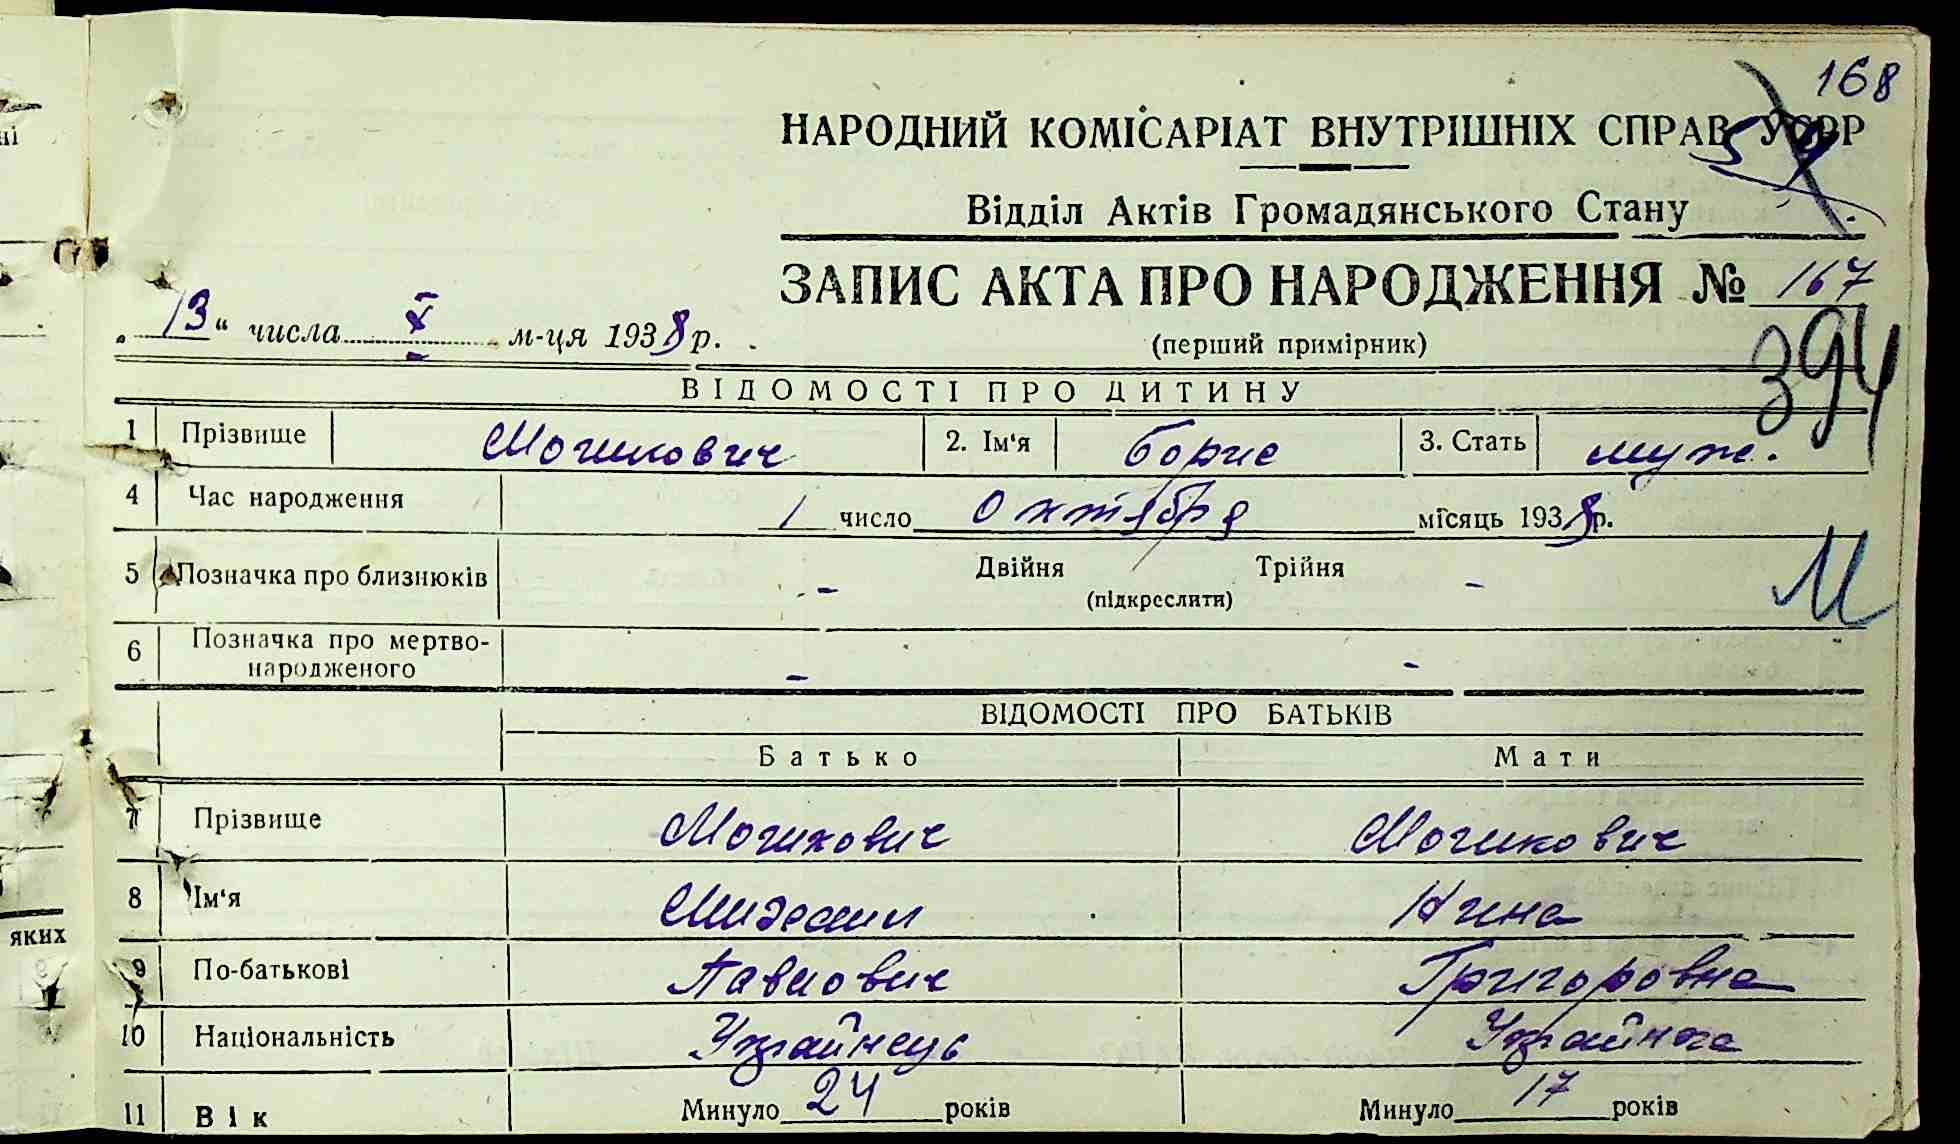 168
НАРОДНИЙ КОМІСАРІАТ ВНУТРІШНІХ СПРАВ УСРР
Відділ Актів Громадянського Стану
ЗАПИС АКТА ПРО НАРОДЖЕННЯ № 167
„13“ числа X м-ця 1938 р.
(перший примірник)
394
ВІДОМОСТІ ПРО ДИТИНУ
1 Прізвище Могикович 2. Ім'я Борис 3. Стать муж.
4 Час народження 1 число октября місяць 1938 р.
5 Позначка про близнюків - Двійня Трійня -
(підкреслити)
М
6 Позначка про мертво-
народженого - -
ВІДОМОСТІ ПРО БАТЬКІВ
Батько Мати
7 Прізвище Могикович Могикович
8 Ім'я Михаил Нина
яких
9 По-батькові Павлович Григоровна
10 Національність Українець Українка
11 Вік Минуло 24 років Минуло 17 років